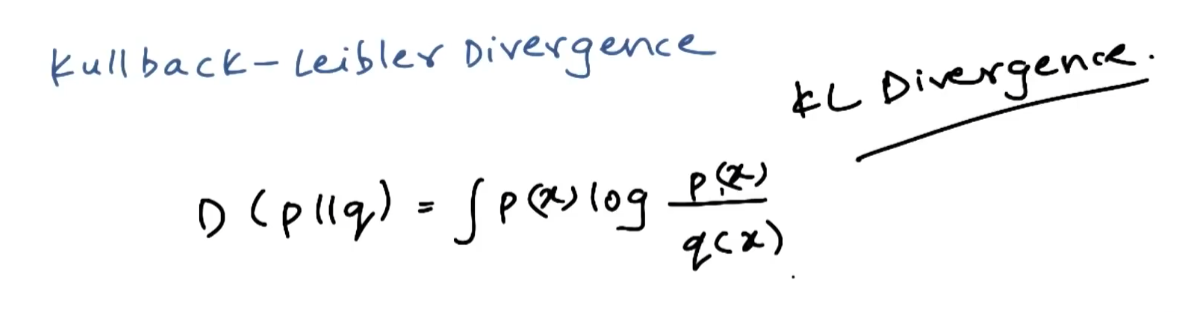 Kullback-Leibler Divergence
KL Divergence.
D (p||q) = ∫ p(x) log p(x)/q(x)